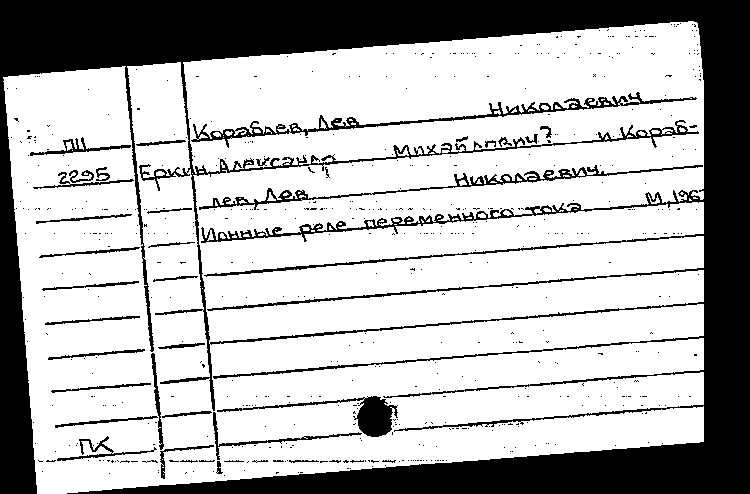 Кораблев, Лев Николаевич
П11
2295 Еркин, Александр Михайлович? и Кораб-
лев, Лев Николаевич.
Ионные реле переменного тока М, 196
ПК